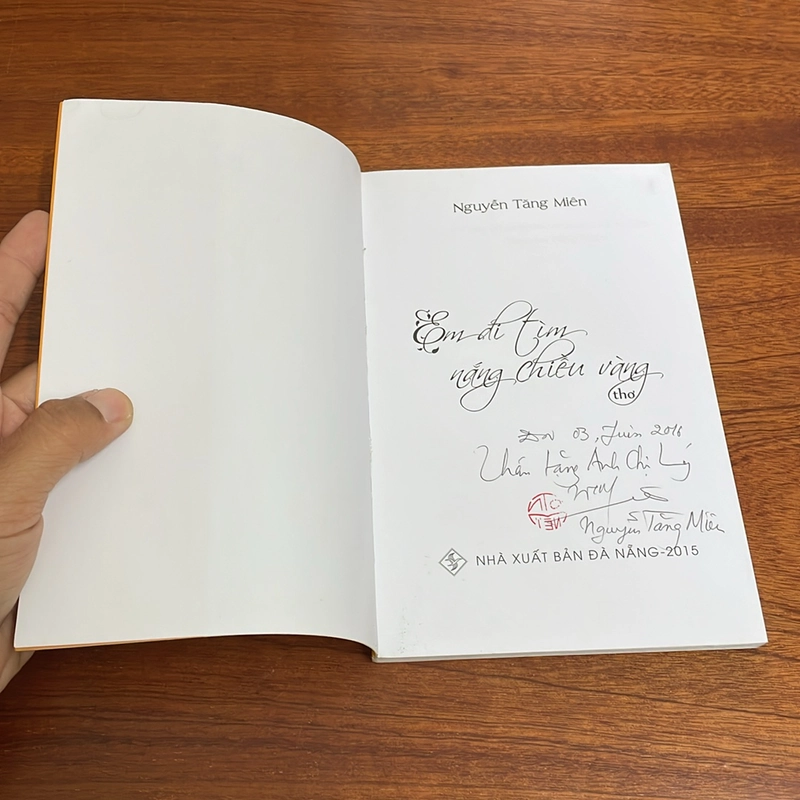 Nguyễn Tăng Miên
Em đi tìm
nắng chiều vàng
thơ
03, Juin 2016
Thân tặng Anh Chị Lý
Nguyễn Tăng Miên
NHÀ XUẤT BẢN ĐÀ NẴNG-2015